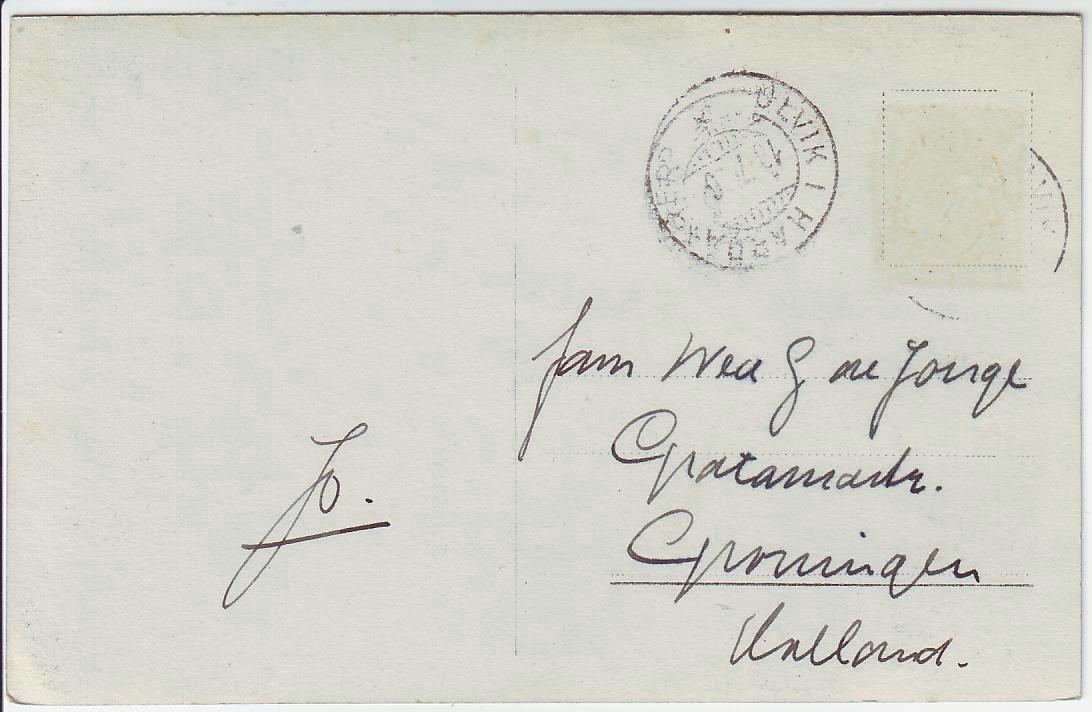 DEVIK I HARDANGER
Jo.
Fam Wed G de Jonge
Gratamastr.
Groningen
Holland.